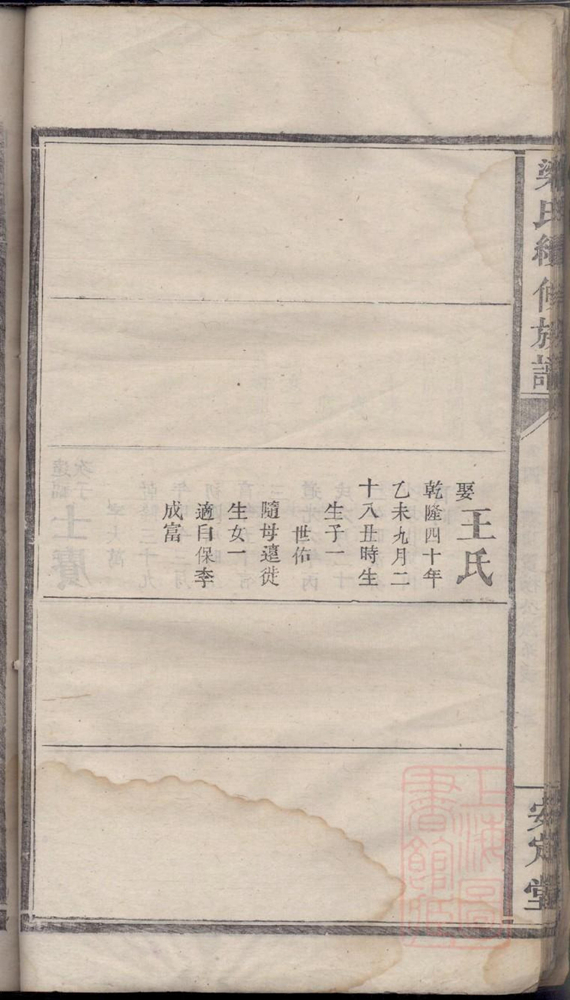 梁氏續修族譜
安定堂
娶王氏
乾隆四十年
乙未九月二
十八丑時生
生子一
世佑
隨母連徙
生女一
適白保李
成富
上海圖
書館藏